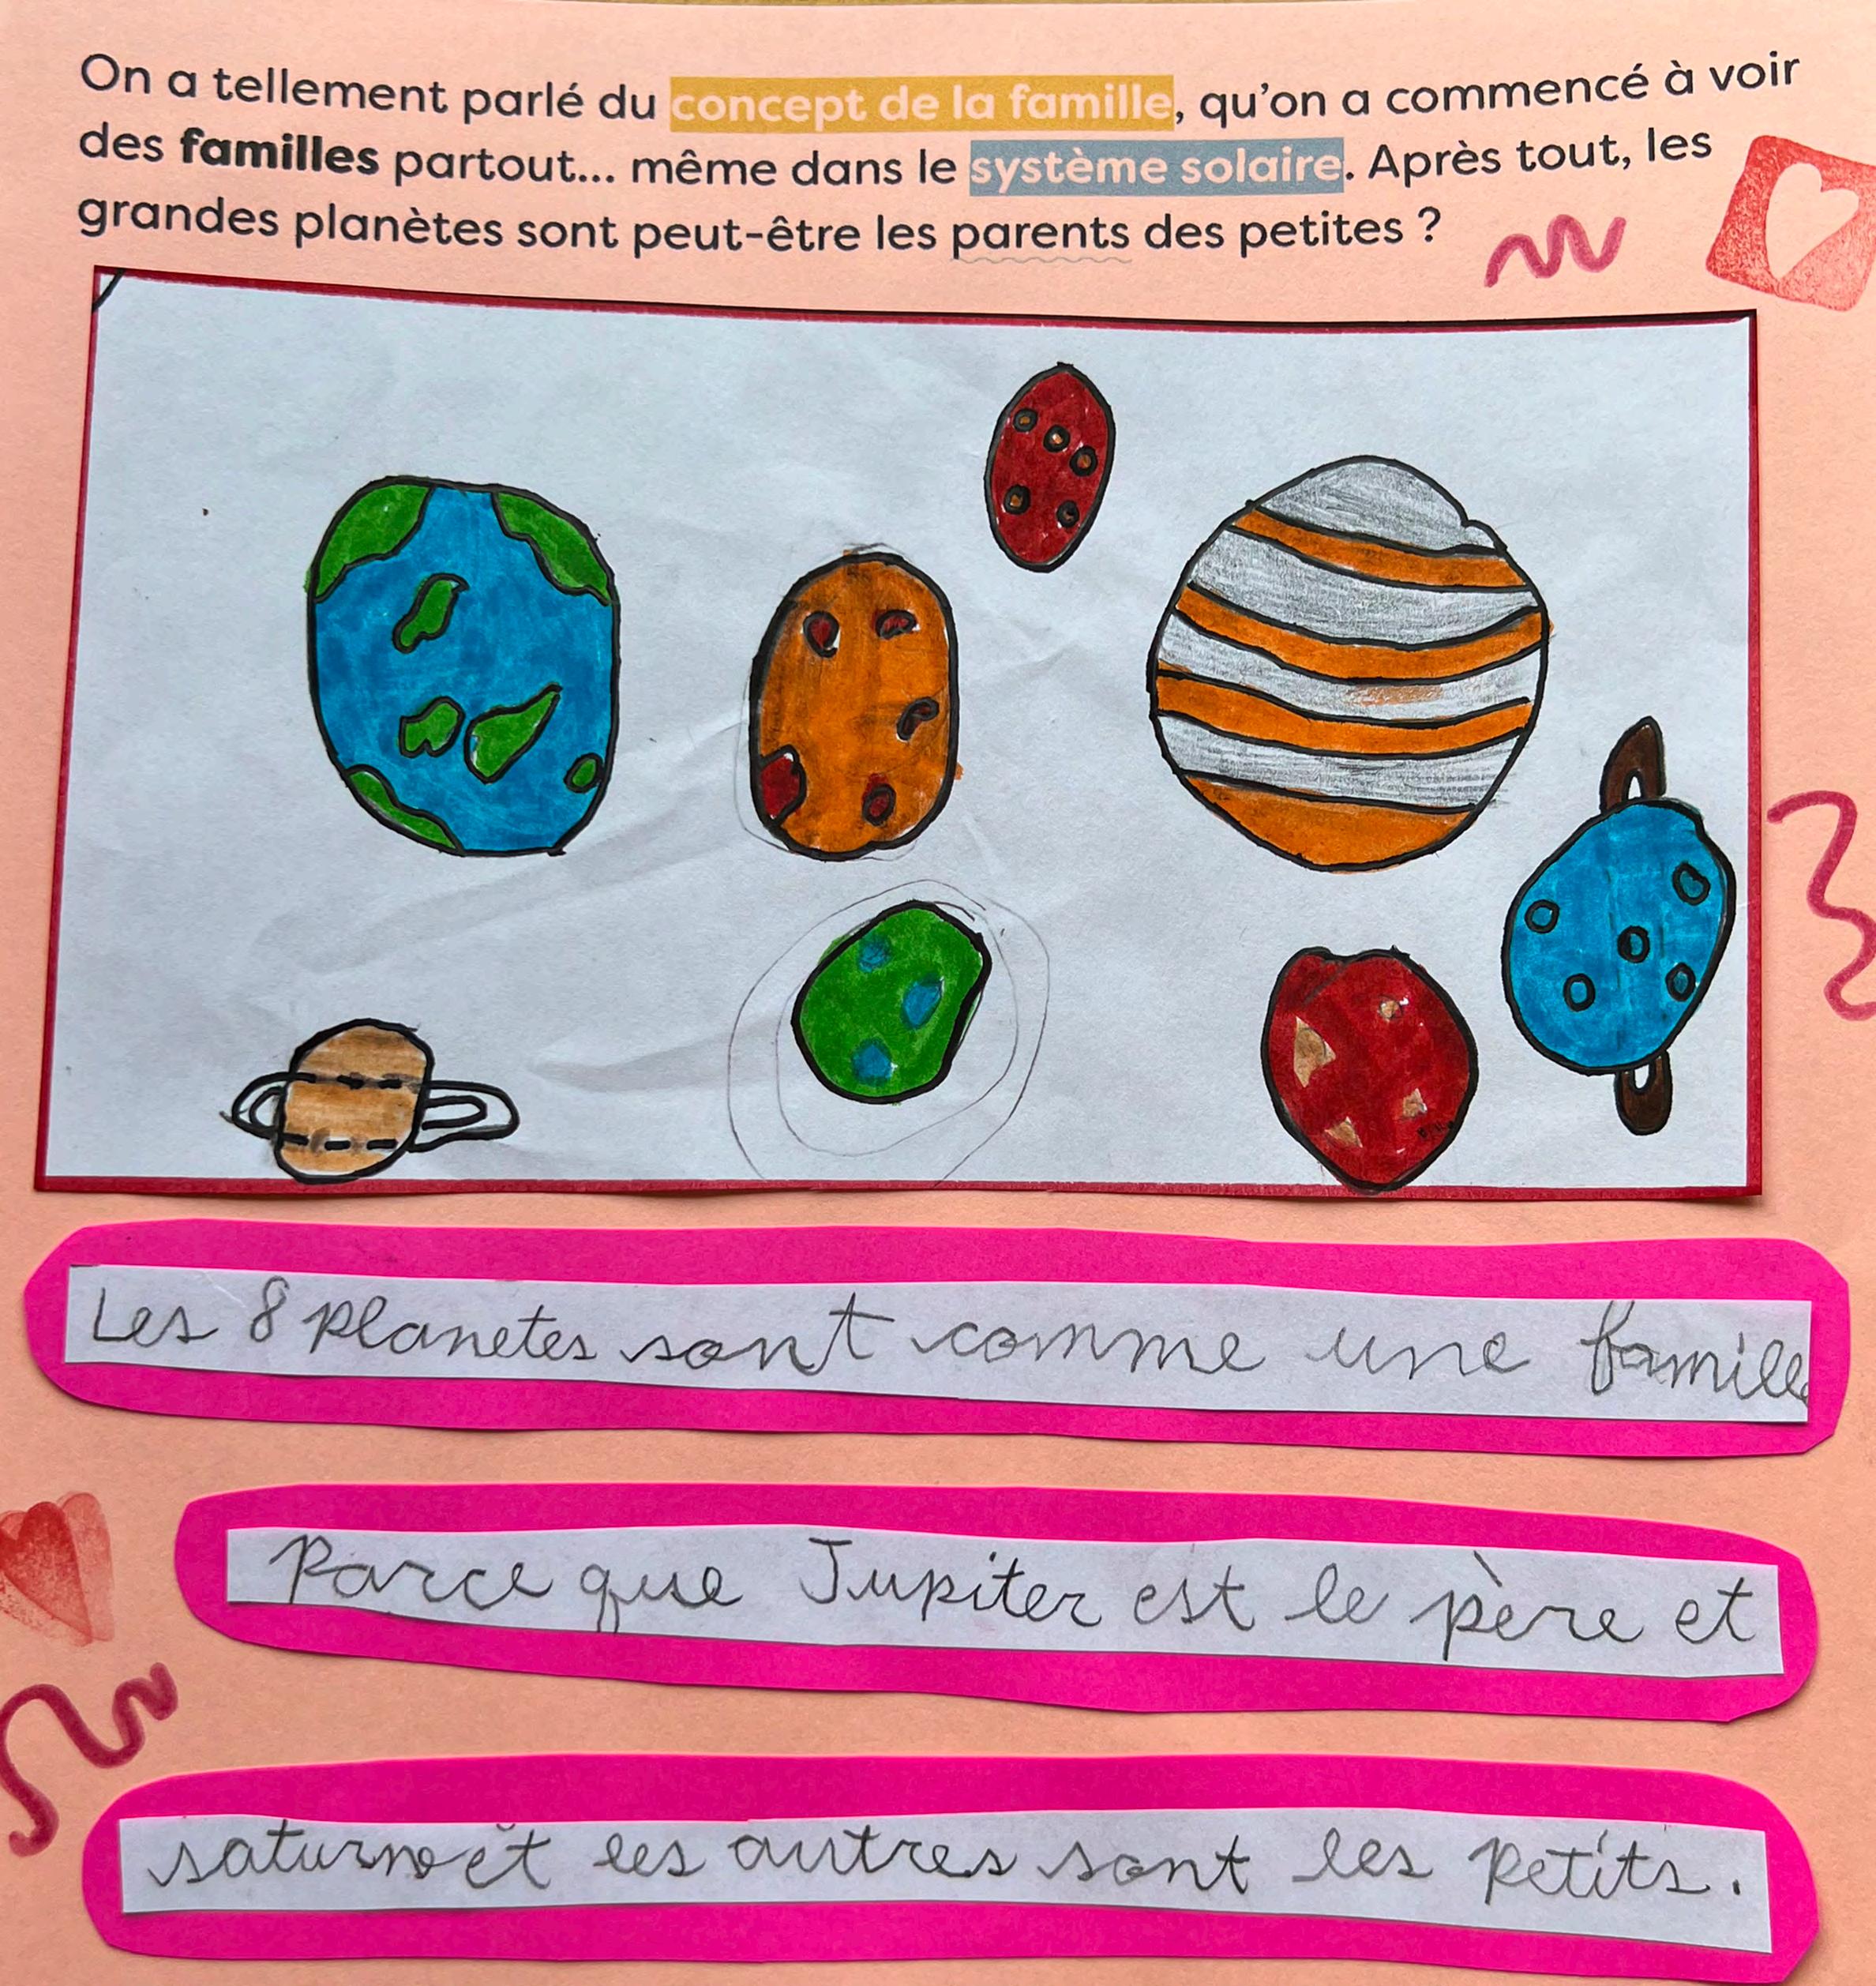 On a tellement parlé du concept de la famille, qu'on a commencé à voir
des familles partout... même dans le système solaire. Après tout, les
grandes planètes sont peut-être les parents des petites ?
Les 8 planetes sont comme une famille
Parce que Jupiter est le père et
saturne et les autres sont les petits.